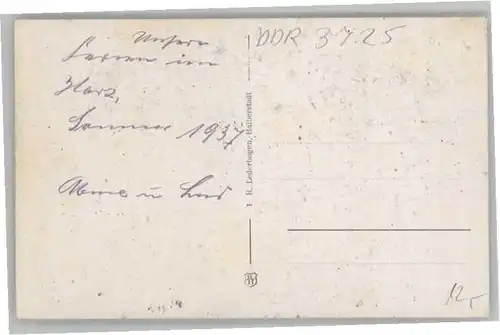 Unsere
Ferien im
Harz,
Sommer 1937
u
DDR 3725
1 R. Lederbogen, Halberstadt
12,-